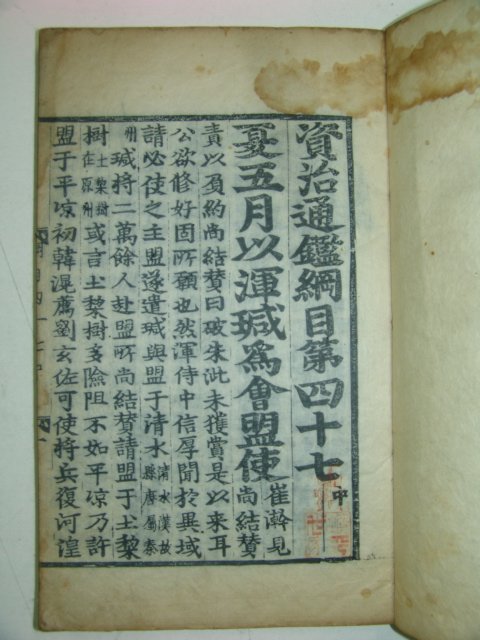 資治通鑑綱目第四十七 中
夏五月以渾瑊爲會盟使 崔澣見尚結贊
責以負約尚結贊曰破朱泚未獲賞是以來耳
公欲修好固所願也然渾侍中信厚聞於異域
請必使之主盟遂遣瑊與盟于清水 清水漢故縣唐屬秦
州 瑊將二萬餘人赴盟所尚結贊請盟于土黎
樹 土黎樹在原州 或言土黎樹多險阻不如平凉乃許
盟于平凉初韓滉薦劉玄佐可使將兵復河湟